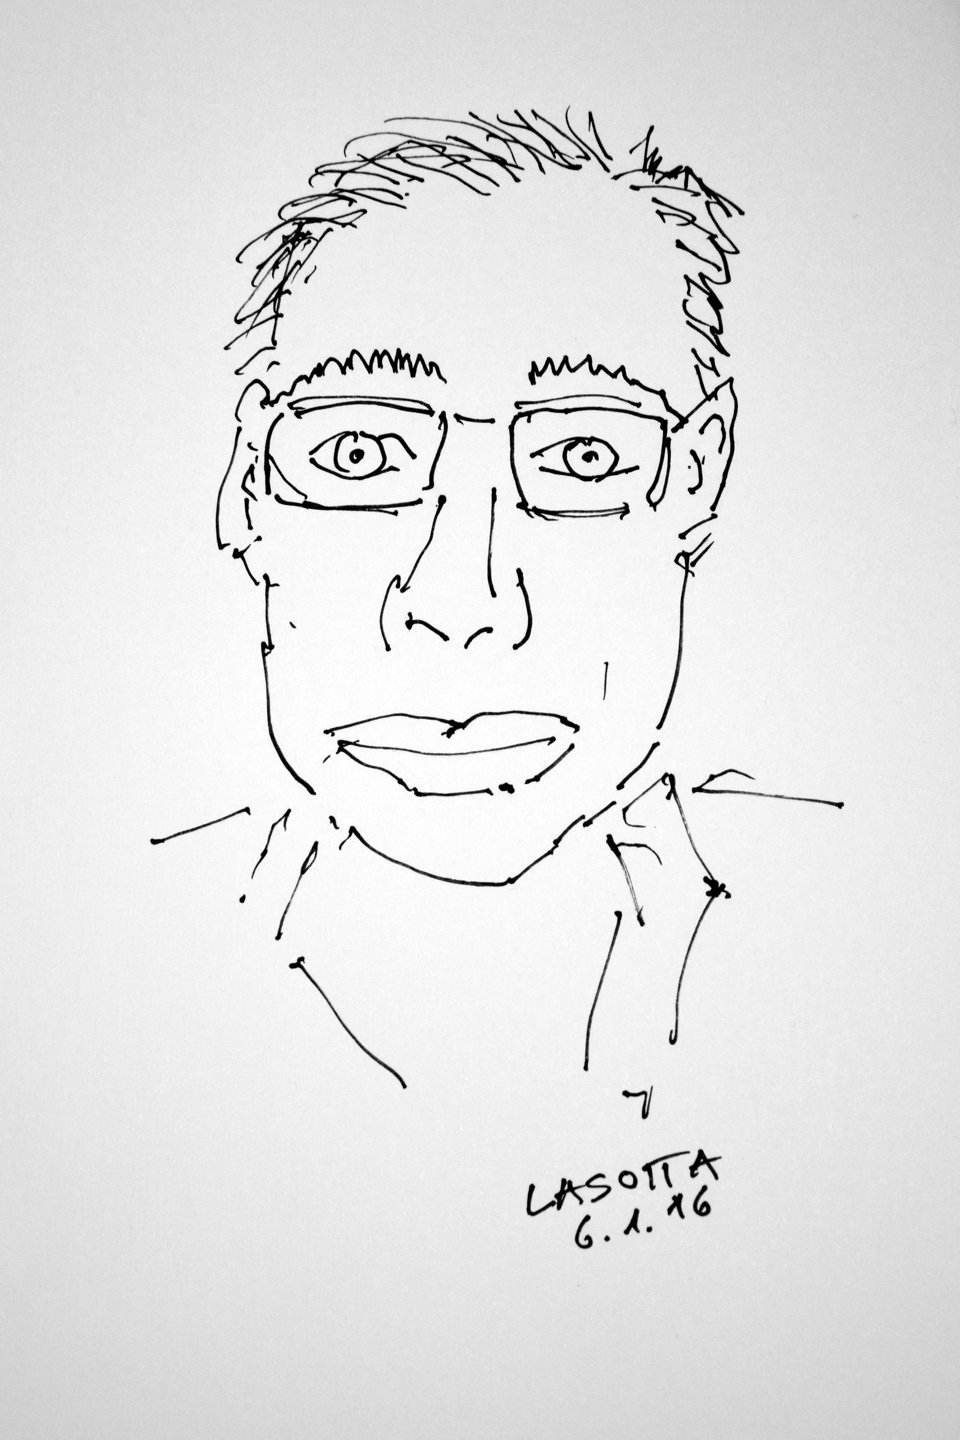 LASOTTA
6.1.16